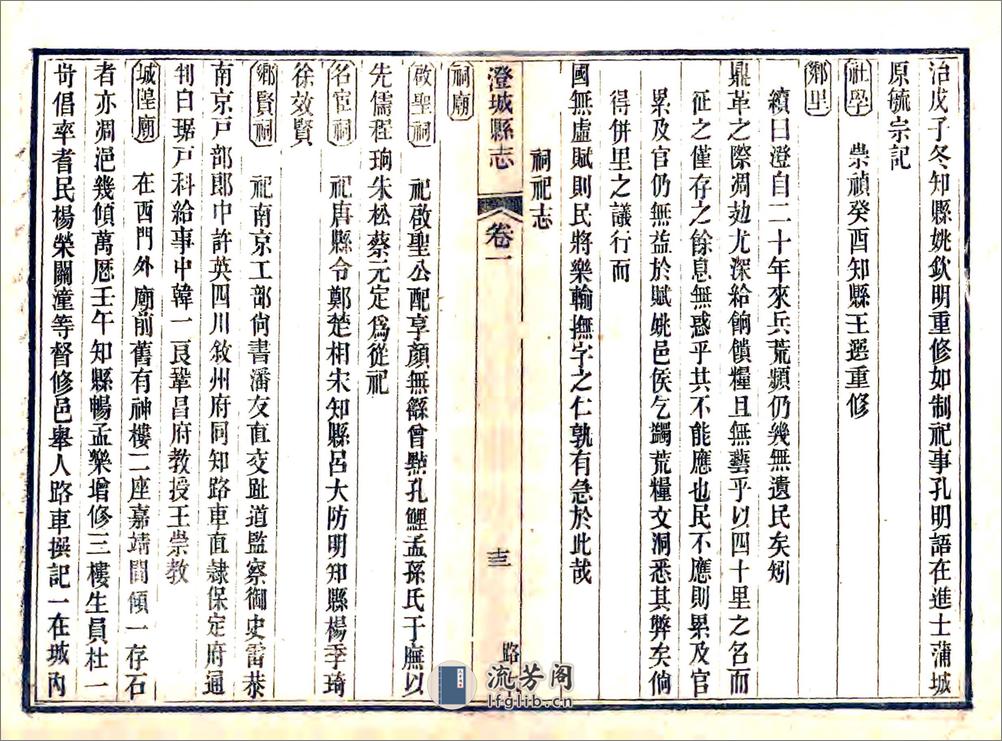 治戊子冬知縣姚欽明重修如制祀事孔明語在進士蒲城
原毓宗記
社學 崇禎癸酉知縣王選重修
鄉里
續曰澄自二十年來兵荒頻仍幾無遺民矣矧
鼎革之際凋攰尤深給餉饋糧且無藝乎以四十里之名而
征之僅存之餘息無惑乎其不能應也民不應則累及官
累及官仍無益於賦姚邑侯乞蠲荒糧文洞悉其弊矣倘
得併里之議行而
國無虛賦則民將樂輸撫字之仁孰有急於此哉
祠祀志
澄城縣志 卷一 十三 路
祠廟
啟聖祠 祀啟聖公配享顏無繇曾點孔鯉孟孫氏于廡以
先儒程珦朱松蔡元定為從祀
名宦祠 祀唐縣令鄭楚相宋知縣呂大防明知縣楊季琦
徐效賢
鄉賢祠 祀南京工部尚書潘友直交趾道監察御史雷恭
南京戶部郎中許英四川敘州府同知路車直隸保定府通
判白琚戶科給事中韓一良鞏昌府教授王崇教
城隍廟 在西門外廟前舊有神樓二座嘉靖間傾一存石
者亦凋浥幾傾萬厯壬午知縣暢孟樂增修三樓生員杜一
岢倡率耆民楊榮關潼等督修邑舉人路車撰記一在城內
流芳阁
lfglib.cn